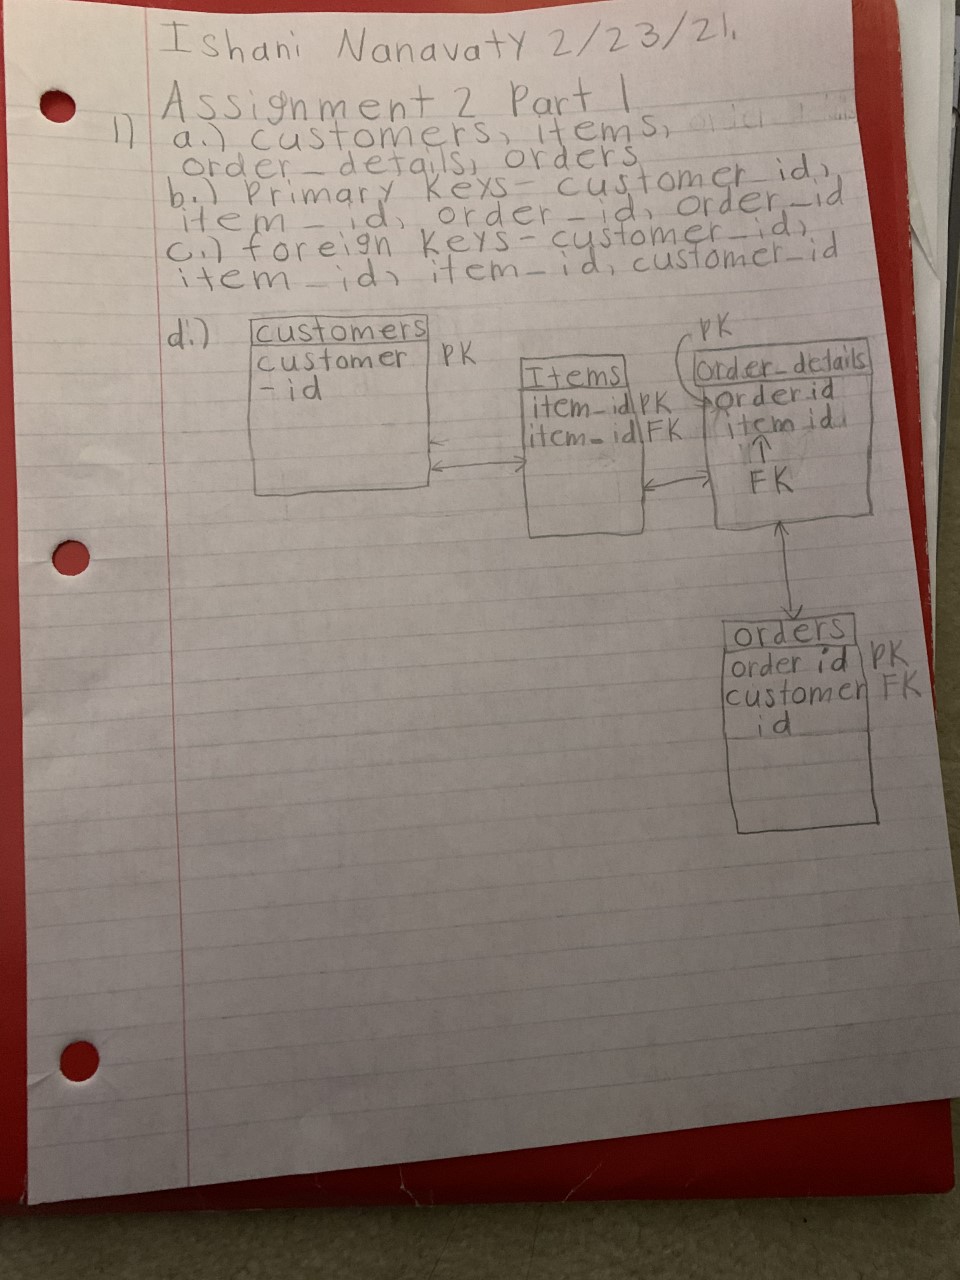 Ishani Nanavaty 2/23/21.
Assignment 2 Part 1
1) a.) customers, items,
order_details, orders
b.) Primary Keys- customer_id,
item_id, order_id, order_id
c.) foreign Keys- customer_id,
item_id, item_id, customer_id
d.)
customers
customer PK
-id
Items
item_id PK
item_id FK
PK
order_details
order id
item id
FK
orders
order id PK
customer FK
id